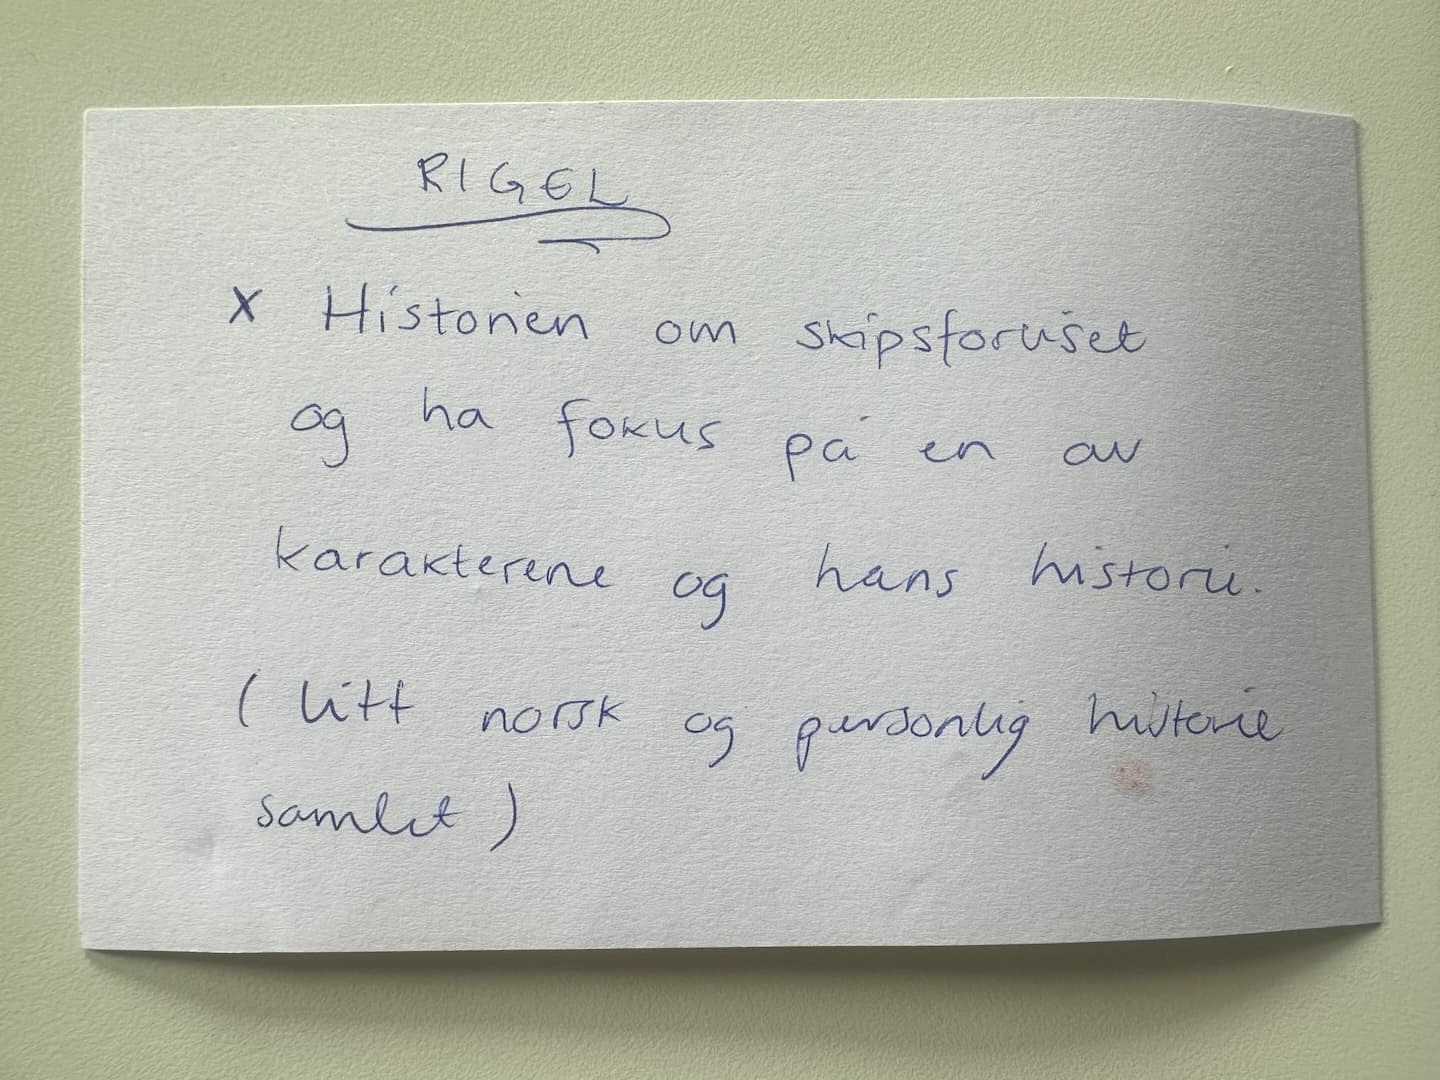 RIGEL
x Historien om skipsforliset
og ha fokus på en av
karakterene og hans historie.
(litt norsk og personlig historie
samlet)